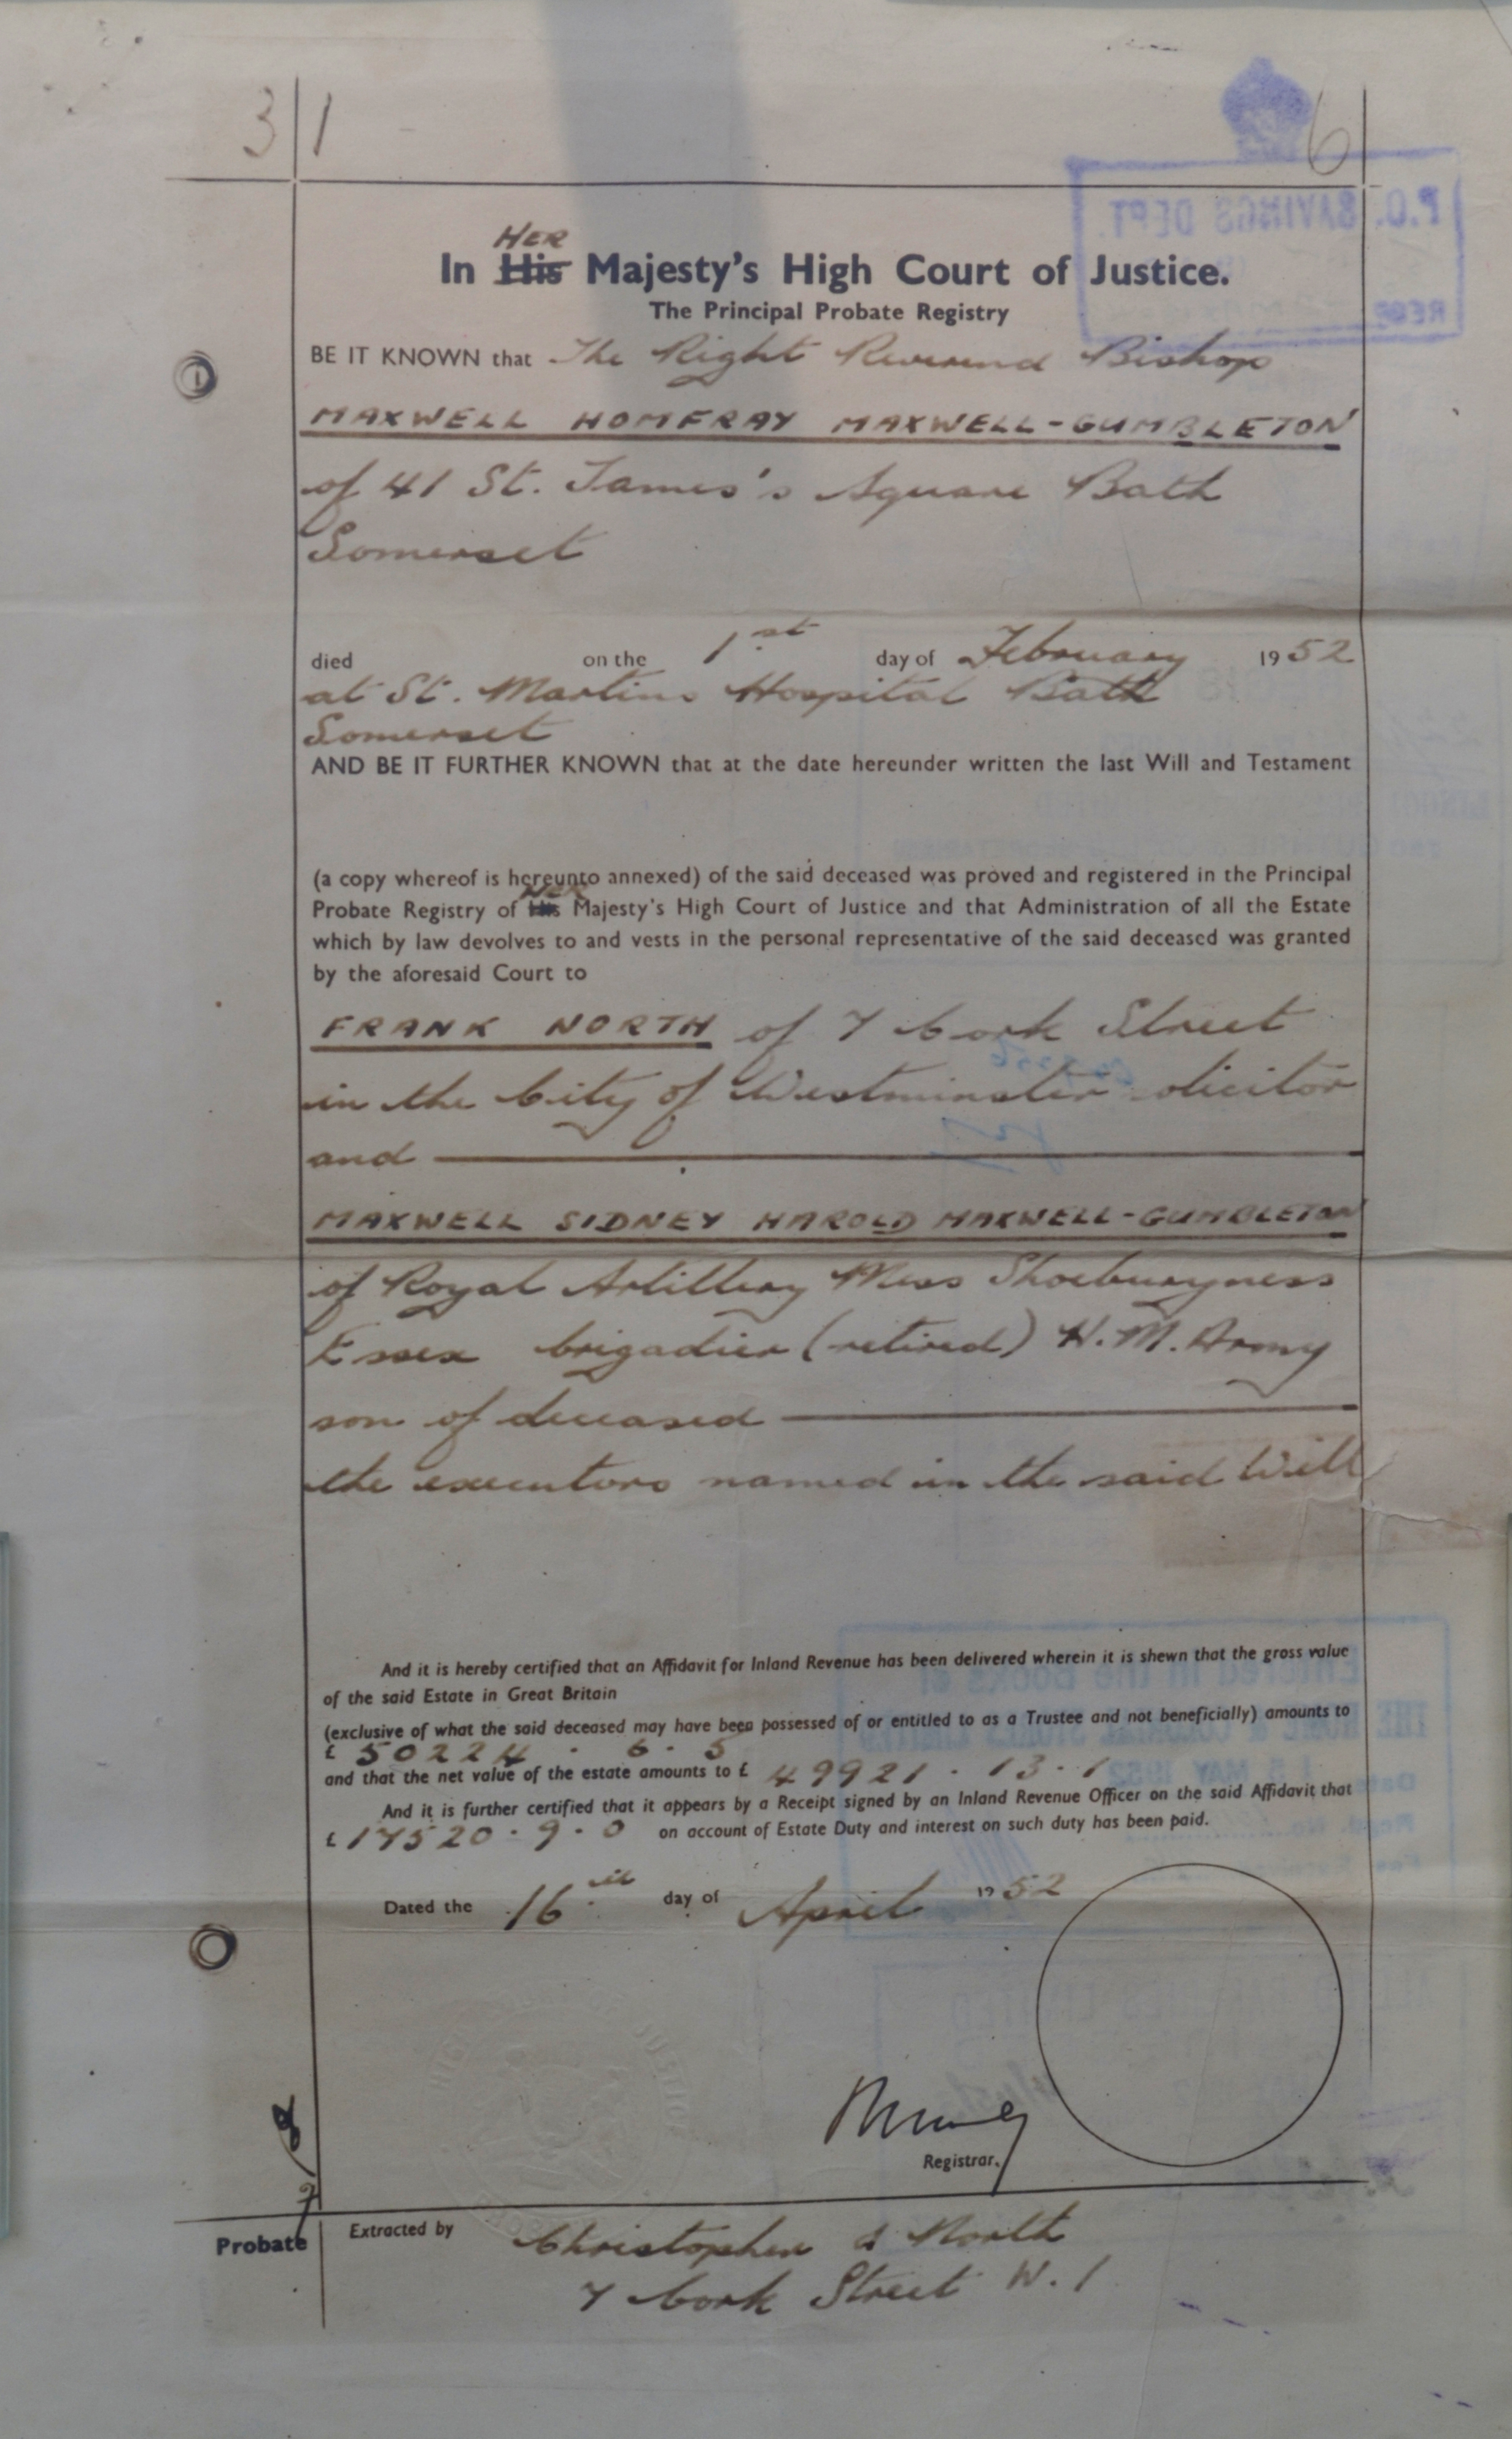 3 1 6
HER
In His Majesty's High Court of Justice.
The Principal Probate Registry
BE IT KNOWN that The Right Reverend Bishop
MAXWELL HOMFRAY MAXWELL-GUMBLETON
of 41 St. James's Square Bath
Somerset
died on the 1st day of February 1952
at St. Martins Hospital Bath
Somerset
AND BE IT FURTHER KNOWN that at the date hereunder written the last Will and Testament
(a copy whereof is hereunto annexed) of the said deceased was proved and registered in the Principal
HER
Probate Registry of His Majesty's High Court of Justice and that Administration of all the Estate
which by law devolves to and vests in the personal representative of the said deceased was granted
by the aforesaid Court to
FRANK NORTH of 7 Cork Street
in the City of Westminster solicitor
and
MAXWELL SIDNEY HAROLD MAXWELL-GUMBLETON
of Royal Artillery Mess Shoeburyness
Essex brigadier (retired) H.M. Army
son of deceased
the executors named in the said Will
And it is hereby certified that an Affidavit for Inland Revenue has been delivered wherein it is shewn that the gross value
of the said Estate in Great Britain
(exclusive of what the said deceased may have been possessed of or entitled to as a Trustee and not beneficially) amounts to
£ 50224 . 6 . 5
and that the net value of the estate amounts to £ 49921 . 13 . 1
And it is further certified that it appears by a Receipt signed by an Inland Revenue Officer on the said Affidavit that
£ 17520 . 9 . 0 on account of Estate Duty and interest on such duty has been paid.
Dated the 16th day of April 1952
Registrar.
Probate Extracted by Christopher & North
7 Cork Street W.1
P.O. SAVINGS DEPT.